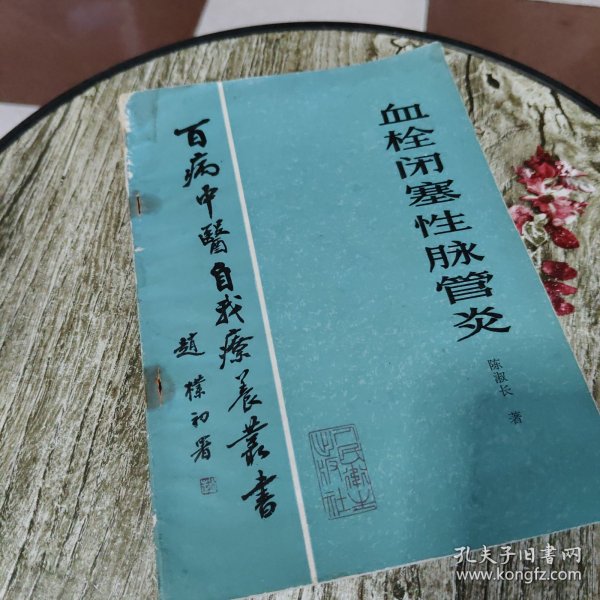 血栓闭塞性脉管炎
陈淑长 著
百病中醫自我療養叢書
趙樸初署
人民衛生
出版社
孔夫子旧书网
www.kongfz.com